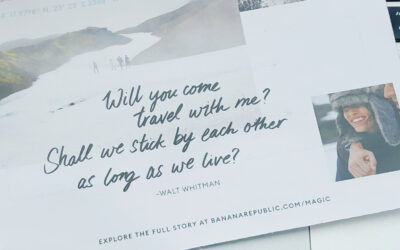 Will you come
travel with me?
Shall we stick by each other
as long as we live?
-WALT WHITMAN
EXPLORE THE FULL STORY AT BANANAREPUBLIC.COM/MAGIC